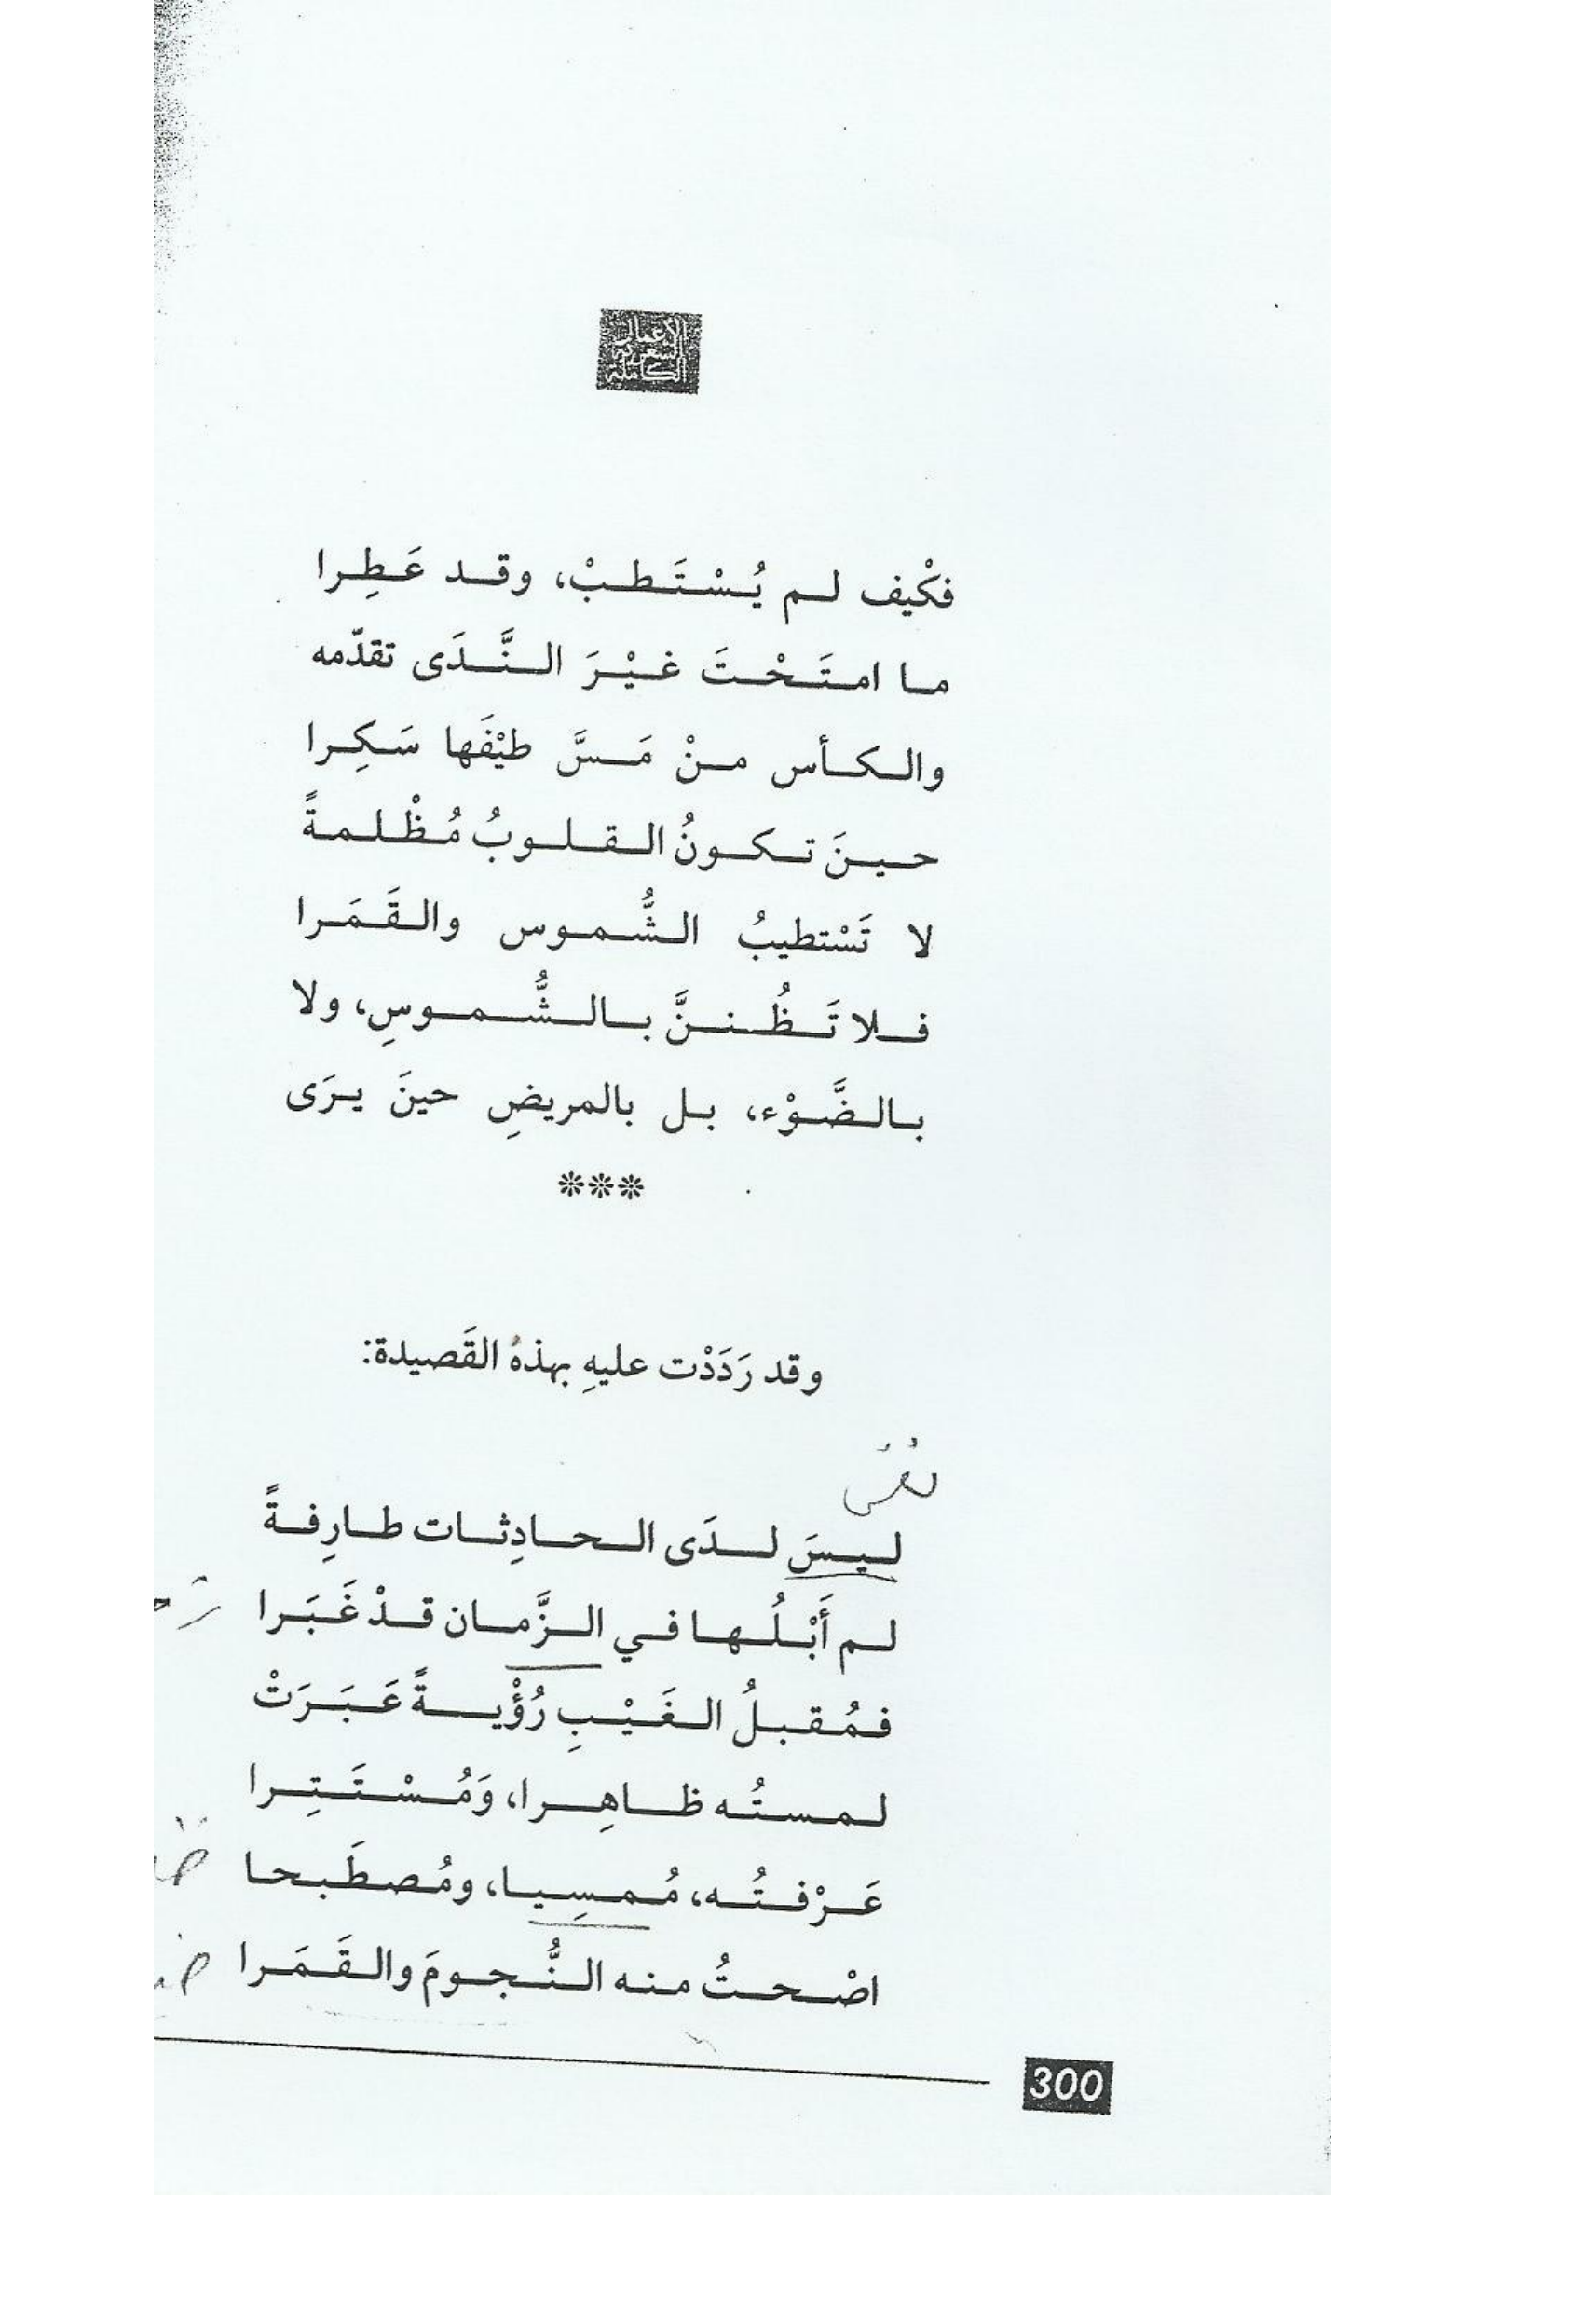 الأعمال
الشعرية
الكاملة
فكْيف لم يُسْتَطبْ، وقد عَطِرا
ما امتَحْتَ غيْرَ النَّدَى تقدّمه
والكأس منْ مَسَّ طيْفَها سَكِرا
حينَ تكونُ القلوبُ مُظْلمةً
لا تَسْتطيبُ الشُّموس والقَمَرا
فلا تَظُننَّ بالشُّموسِ، ولا
بالضَّوْء، بل بالمريضِ حينَ يرَى
***
وقد رَدَدْت عليهِ بهذهُ القَصيدة:
ليسَ لدَى الحادِثات طارِفةً
لم أَبْلُها في الزَّمان قدْ غَبَرا
فمُقبلُ الغَيْبِ رُؤْيةً عَبَرَتْ
لمستُه ظاهِرا، وَمُسْتَتِرا
عَرْفتُه، مُمسِيا، ومُصطَبحا
اصْحتُ منه النُّجومَ والقَمَرا
300